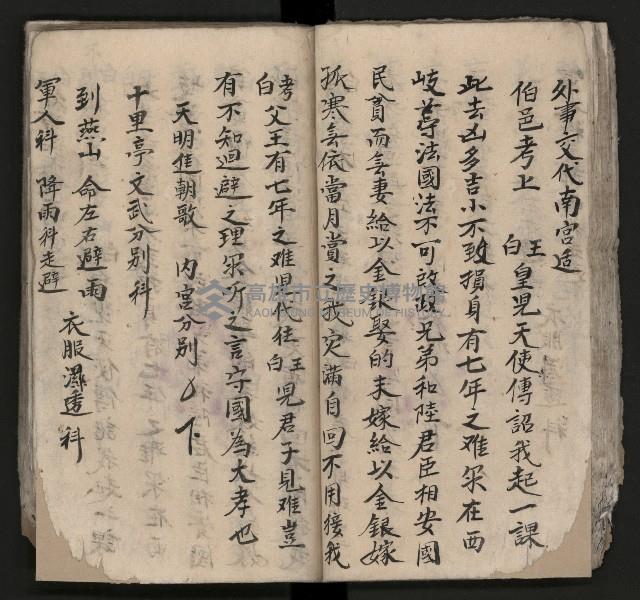 外事交代南宮适
伯邑考上 王白 皇児天使傳詔我起一課
此去凶多吉小不致損身有七年之难児在西
岐尊法國法不可改政兄弟和陸君臣相安國
民貧而無妻給以金銀娶的未嫁給以金銀嫁
孤寒無依當月賞之我灾滿自回不用接我
考白 父王有七年之难児代往 王白 児君子見难豈
有不知迴避之理児听之言守國為大孝也
天明進朝歌 内宮分別 下
十里亭文武分別科
到燕山 命左右避雨 衣服濕透科
軍人科 降雨科走避
高雄市立歷史博物館
KAOHSIUNG MUSEUM OF HISTORY